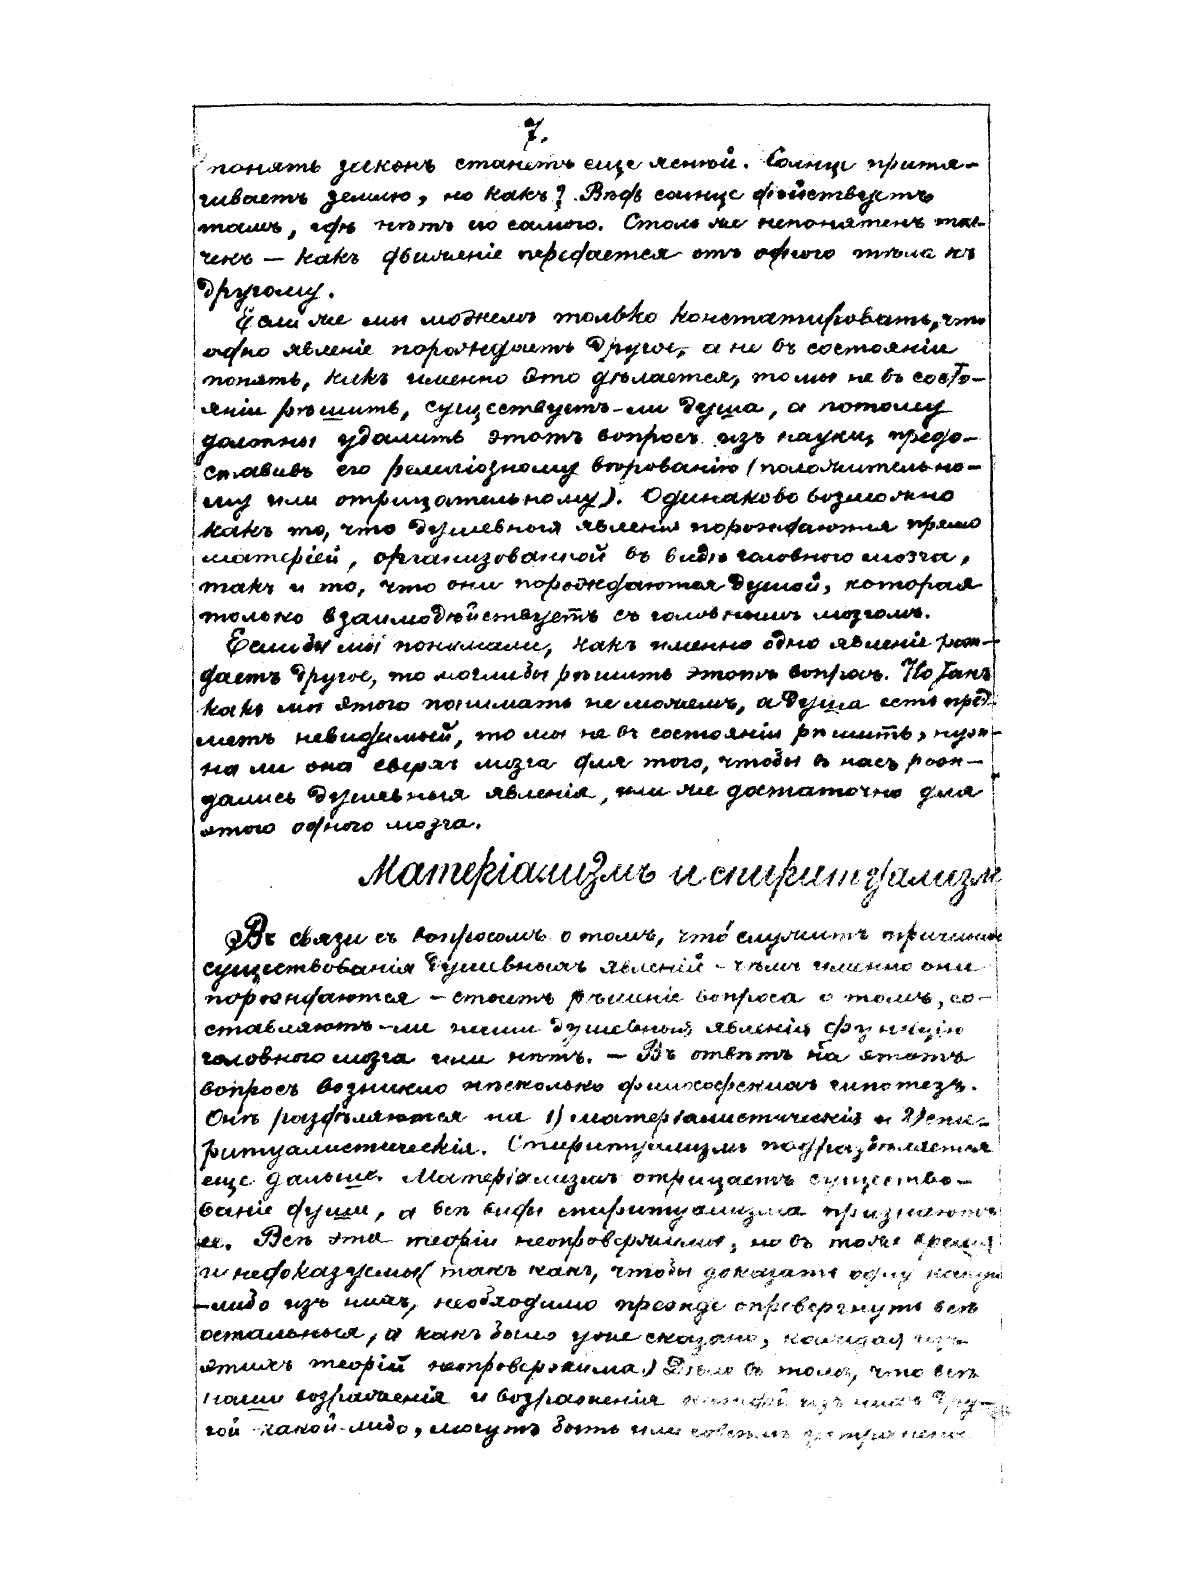 7.
понять законъ станетъ еще ясной. Солнце притя-
гиваетъ землю, но какъ? Вѣдь солнце дѣйствуетъ
тамъ, гдѣ нѣтъ его самого. Столь же непонятенъ тол-
чекъ — какъ движеніе передается отъ одного тѣла къ
другому.
Если же мы можемъ только констатировать, что
одно явленіе порождаетъ другое, а не въ состояніи
понять, какъ именно это дѣлается, то мы не въ состо-
яніи рѣшить, существуетъ-ли душа, а потому
должны удалить этотъ вопросъ изъ науки, предо-
ставивъ его религіозному вѣрованію (положительно-
му или отрицательному). Одинаково возможно
какъ то, что душевныя явленія порождаются прямо
матеріей, организованной въ видѣ головного мозга,
такъ и то, что они порождаются душой, которая
только взаимодѣйствуетъ съ головнымъ мозгомъ.
Если бы мы понимали, какъ именно одно явленіе рож-
даетъ другое, то могли бы рѣшить этотъ вопросъ. Но такъ
какъ мы этого понимать не можемъ, а душа есть пред-
метъ невидимый, то мы не въ состояніи рѣшить, нуж-
на ли она сверхъ мозга для того, чтобы въ насъ рож-
дались душевныя явленія, или же достаточно для
этого одного мозга.
Матеріализмъ и спиритуализм
Въ связи съ вопросомъ о томъ, что служитъ причиною
существованія душевныхъ явленій - чѣмъ именно они
порождаются — стоитъ рѣшеніе вопроса о томъ, со-
ставляютъ-ли наши душевныя явленія функцію
головного мозга или нѣтъ. — Въ отвѣтъ на этотъ
вопросъ возникло нѣсколько философскихъ гипотезъ.
Онѣ раздѣляются на 1) матеріалистическія и 2) спи-
ритуалистическія. Спиритуализмъ подраздѣляется
еще дальше. Матеріализмъ отрицаетъ существо-
ваніе души, а всѣ виды спиритуализма признаютъ
ее. Всѣ эти теоріи неопровержимы, но въ тоже время
и недоказуемы (такъ какъ, чтобы доказать одну какую
-либо изъ нихъ, необходимо прежде опровергнуть всѣ
остальныя, а какъ было уже сказано, каждая изъ
этихъ теорій неопровержима) Дѣло въ томъ, что всѣ
наши возраженія и возраженія каждой изъ нихъ дру-
гой какой-либо, могутъ быть или совсѣмъ устранены